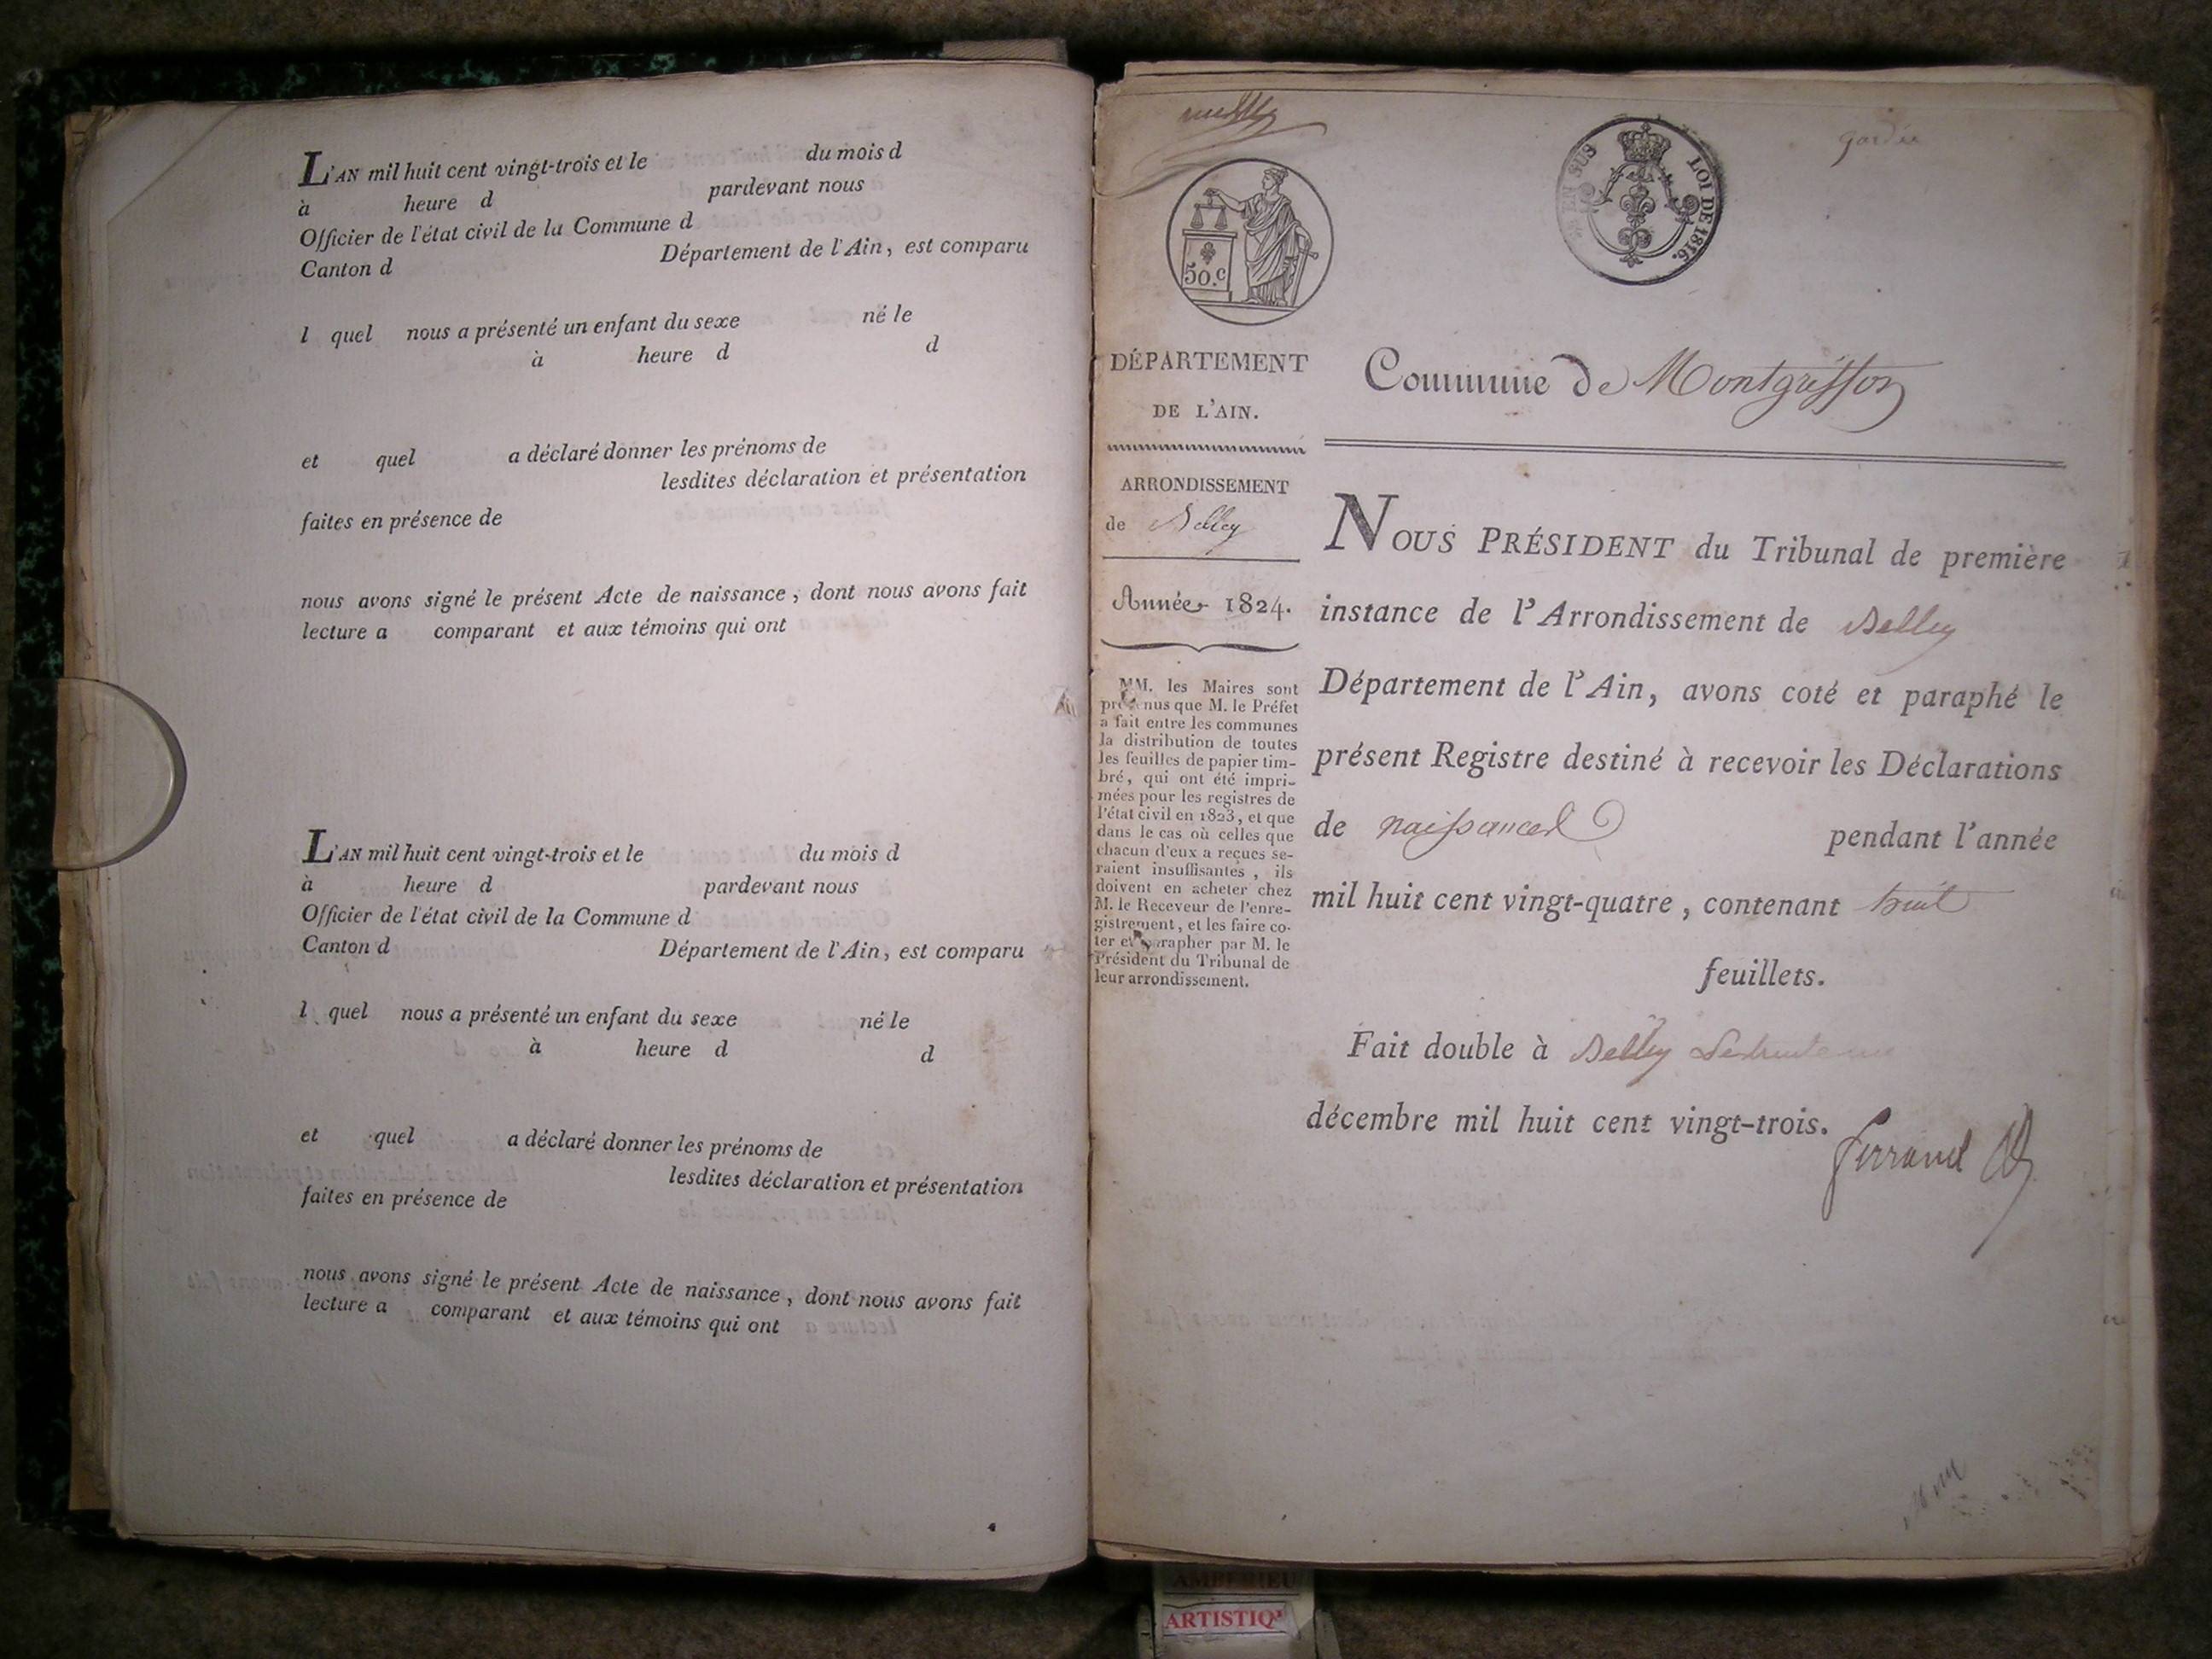 L'AN mil huit cent vingt-trois et le du mois d
à heure d pardevant nous
Officier de l'état civil de la Commune d
Canton d Département de l'Ain, est comparu
l quel nous a présenté un enfant du sexe né le
à heure d d
et quel a déclaré donner les prénoms de
lesdites déclaration et présentation
faites en présence de
nous avons signé le présent Acte de naissance, dont nous avons fait
lecture a comparant et aux témoins qui ont
L'AN mil huit cent vingt-trois et le du mois d
à heure d pardevant nous
Officier de l'état civil de la Commune d
Canton d Département de l'Ain, est comparu
l quel nous a présenté un enfant du sexe né le
à heure d d
et quel a déclaré donner les prénoms de
lesdites déclaration et présentation
faites en présence de
nous avons signé le présent Acte de naissance, dont nous avons fait
lecture a comparant et aux témoins qui ont
50.c
EN SUS LOI DE 1816.
DÉPARTEMENT
DE L'AIN.
ARRONDISSEMENT
de Belley
Année 1824.
MM. les Maires sont
prévenus que M. le Préfet
a fait entre les communes
la distribution de toutes
les feuilles de papier tim-
bré, qui ont été impri-
mées pour les registres de
l'état civil en 1823, et que
dans le cas où celles que
chacun d'eux a reçues se-
raient insuffisantes, ils
doivent en acheter chez
M. le Receveur de l'enre-
gistrement, et les faire co-
ter et parapher par M. le
Président du Tribunal de
leur arrondissement.
Commune de Montgriffon
NOUS PRÉSIDENT du Tribunal de première
instance de l'Arrondissement de Belley
Département de l'Ain, avons coté et paraphé le
présent Registre destiné à recevoir les Déclarations
de naissances pendant l'année
mil huit cent vingt-quatre, contenant huit
feuillets.
Fait double à Belley
décembre mil huit cent vingt-trois.
ferrand
ARTISTIQ